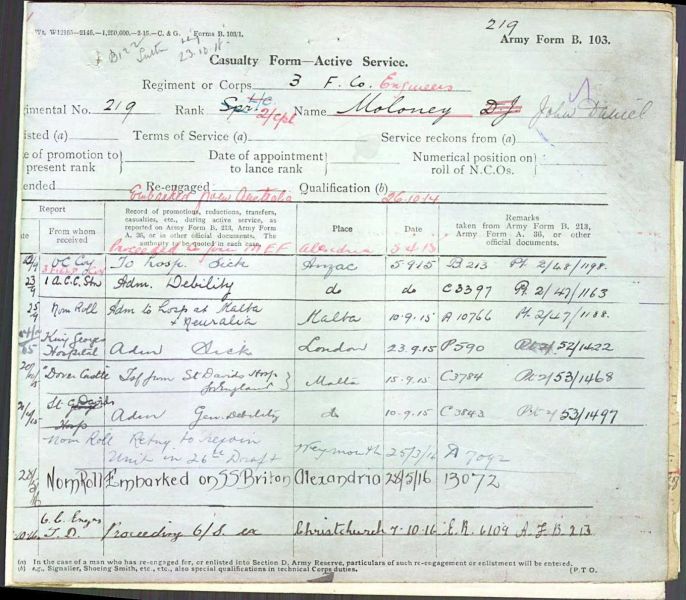 219
Wt. W12165—2146.—1,250,000.—2-15.—C. & G. Forms B. 103/1.
Army Form B. 103.
23.10.15
Casualty Form—Active Service.
Regiment or Corps 3 F. Co. Engineers
imental No. 219 Rank Spr L/C. 2/Cpl Name Moloney D.J John Daniel
isted (a) Terms of Service (a) Service reckons from (a)
e of promotion to present rank } Date of appointment to lance rank } Numerical position on roll of N.C.Os. }
ended Re-engaged Qualification (b)
Embarked from Australia 26.10.14
Report
From whom received
Record of promotions, reductions, transfers, casualties, etc., during active service, as reported on Army Form B. 213, Army Form A. 36, or in other official documents. The authority to be quoted in each case.
Place
Date
Remarks
taken from Army Form B. 213, Army Form A. 36, or other official documents.
Proceeded to join MEF Alexandria 5.4.15
OC Coy To hosp. Sick Anzac 5.9.15 B.213 Pt. 2/48/1198.
23/9 1 A.C.C. Stn Adm. Debility do do C3397 Pt. 2/47/1163
25/9 Nom Roll Adm to hosp at Malta Malta 10.9.15 A10766 Pt. 2/47/1188.
Neuralia
King Georges Hospital Adm Sick London 23.9.15 P590 52/1422
"Dover Castle Tsf from St Davids Hosp to England } Malta 15.9.15 C3784 53/1468
St Davids Hosp Adm Gen. Debility do 10.9.15 C3843 53/1497
Nom Roll Retng to rejoin Unit in 26th Draft Weymouth 25/3/16 A7092
28/5/16 Nom Roll Embarked on SS Briton Alexandria 28/5/16 13072
Proceeding O/S. ex Christchurch 7.10.16 E.R. 6109 A.F.B. 213
(a) In the case of a man who has re-engaged for, or enlisted into Section D, Army Reserve, particulars of such re-engagement or enlistment will be entered.
(b) e.g., Signaller, Shoeing Smith, etc., etc., also special qualifications in technical Corps duties. (P.T.O.